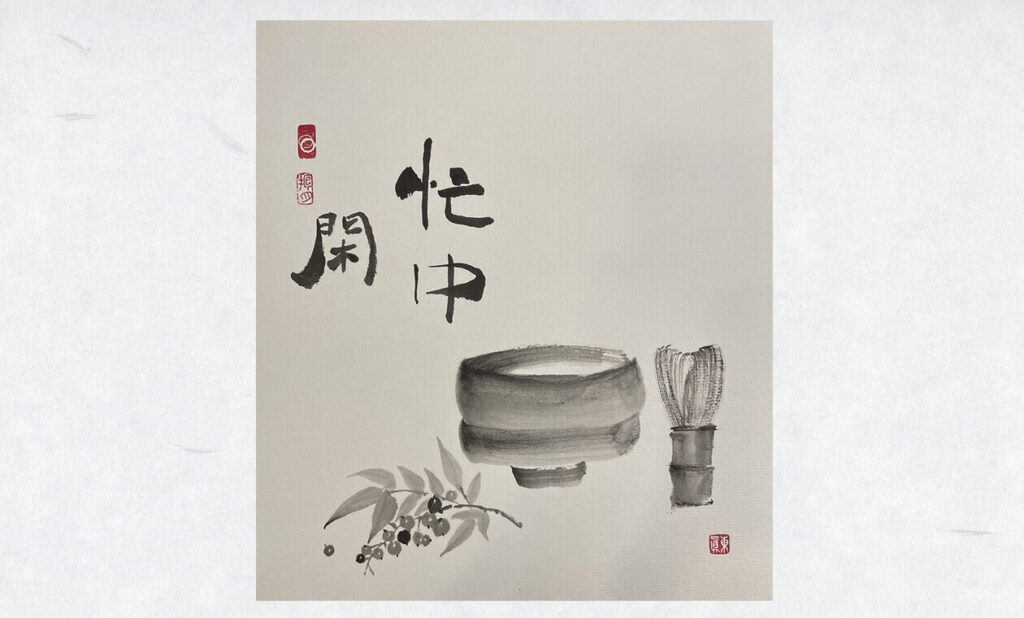 忙中
閑